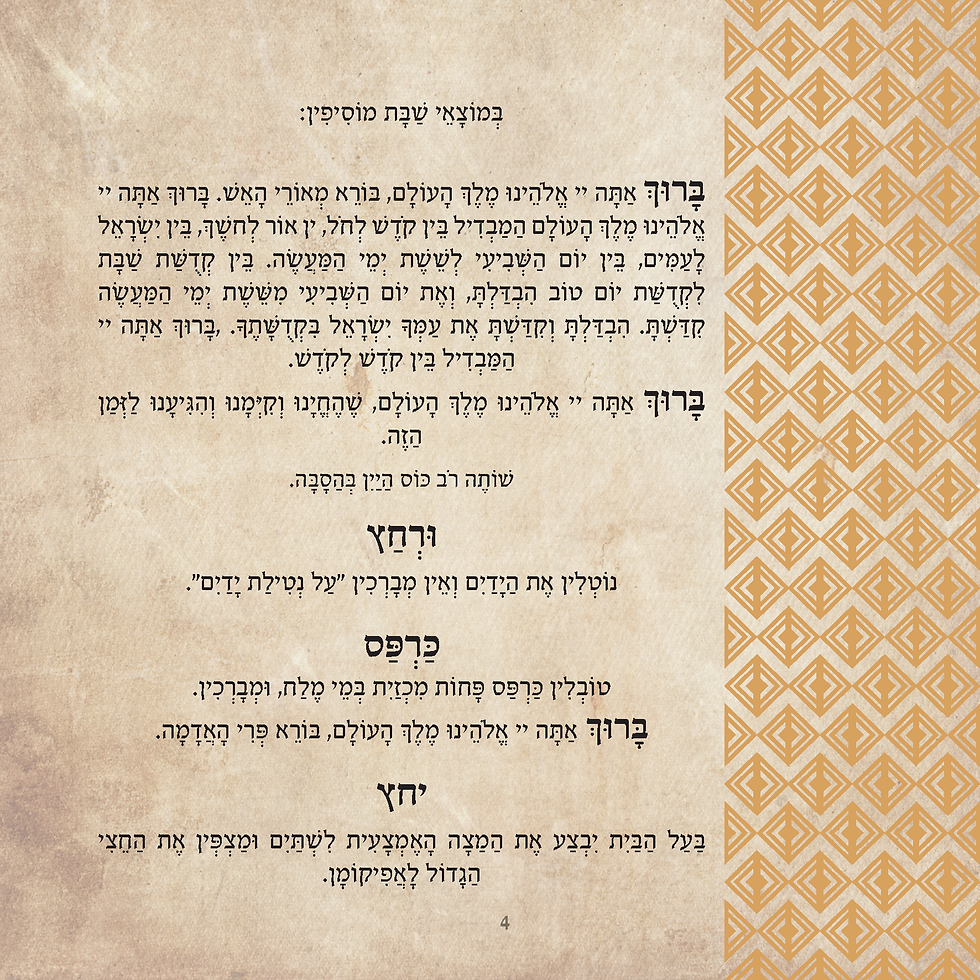 בְּמוֹצָאֵי שַׁבָּת מוֹסִיפִין:
בָּרוּךְ אַתָּה יי אֱלֹהֵינוּ מֶלֶךְ הָעוֹלָם, בּוֹרֵא מְאוֹרֵי הָאֵשׁ. בָּרוּךְ אַתָּה יי
אֱלֹהֵינוּ מֶלֶךְ הָעוֹלָם הַמַּבְדִיל בֵּין קֹדֶשׁ לְחֹל, ין אוֹר לְחֹשֶׁךְ, בֵּין יִשְׂרָאֵל
לָעַמִּים, בֵּין יוֹם הַשְּׁבִיעִי לְשֵׁשֶׁת יְמֵי הַמַּעֲשֶׂה. בֵּין קְדֻשַּׁת שַׁבָּת
לִקְדֻשַּׁת יוֹם טוֹב הִבְדַּלְתָּ, וְאֶת יוֹם הַשְּׁבִיעִי מִשֵּׁשֶׁת יְמֵי הַמַּעֲשֶׂה
קִדַּשְׁתָּ. הִבְדַּלְתָּ וְקִדַּשְׁתָּ אֶת עַמְּךָ יִשְׂרָאֵל בִּקְדֻשָּׁתֶךָ. ,בָּרוּךְ אַתָּה יי
הַמַּבְדִיל בֵּין קֹדֶשׁ לְקֹדֶשׁ.
בָּרוּךְ אַתָּה יי אֱלֹהֵינוּ מֶלֶךְ הָעוֹלָם, שֶׁהֶחֱיָנוּ וְקִיְּמָנוּ וְהִגִּיעָנוּ לַזְּמַן
הַזֶּה.
שׁוֹתֶה רֹב כּוֹס הַיַּיִן בְּהַסָבָּה.
וּרְחַץ
נוֹטְלִין אֶת הַיָדַיִם וְאֵין מְבָרְכִין ״עַל נְטִילַת יָדַיִם״.
כַּרְפַּס
טוֹבְלִין כַּרְפַּס פָּחוֹת מִכְזַיִת בְּמֵי מֶלַח, וּמְבָרְכִין.
בָּרוּךְ אַתָּה יי אֱלֹהֵינוּ מֶלֶךְ הָעוֹלָם, בּוֹרֵא פְּרִי הָאֲדָמָה.
יחץ
בַּעַל הַבַּיִת יִבְצַע אֶת הַמַּצָה הָאֶמְצָעִית לִשְׁתַּיִם וּמַצְפִּין אֶת הַחֵצִי
הַגָדוֹל לָאֲפִיקוֹמָן.
4